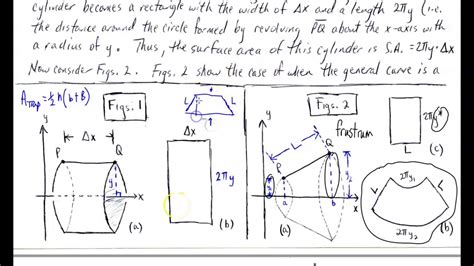 cylinder becomes a rectangle with the width of Δx and a length 2πy (i.e.
the distance around the circle formed by revolving PQ about the x-axis with
a radius of y. Thus, the surface area of this cylinder is S.A. = 2πy·Δx
Now consider Figs. 2. Figs. 2 show the case of when the general curve is a
A_Trap = ½ h(b+B)
Figs. 1
L
L
Figs. 2
frustrum
2πy*
L
(c)
y
Δx
P
Q
y
x
(a)
Δx
2πy
(b)
y
L
Q
P
y₂
a
b
x
(a)
L
2πy₁
L
2πy₂
(b)